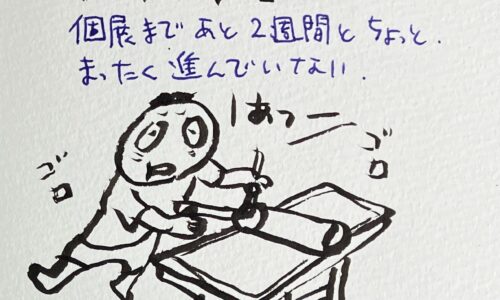 個展まで あと 2週間と ちょっと.
まったく 進んでいない.
はぁっー
ゴロ
ゴロ